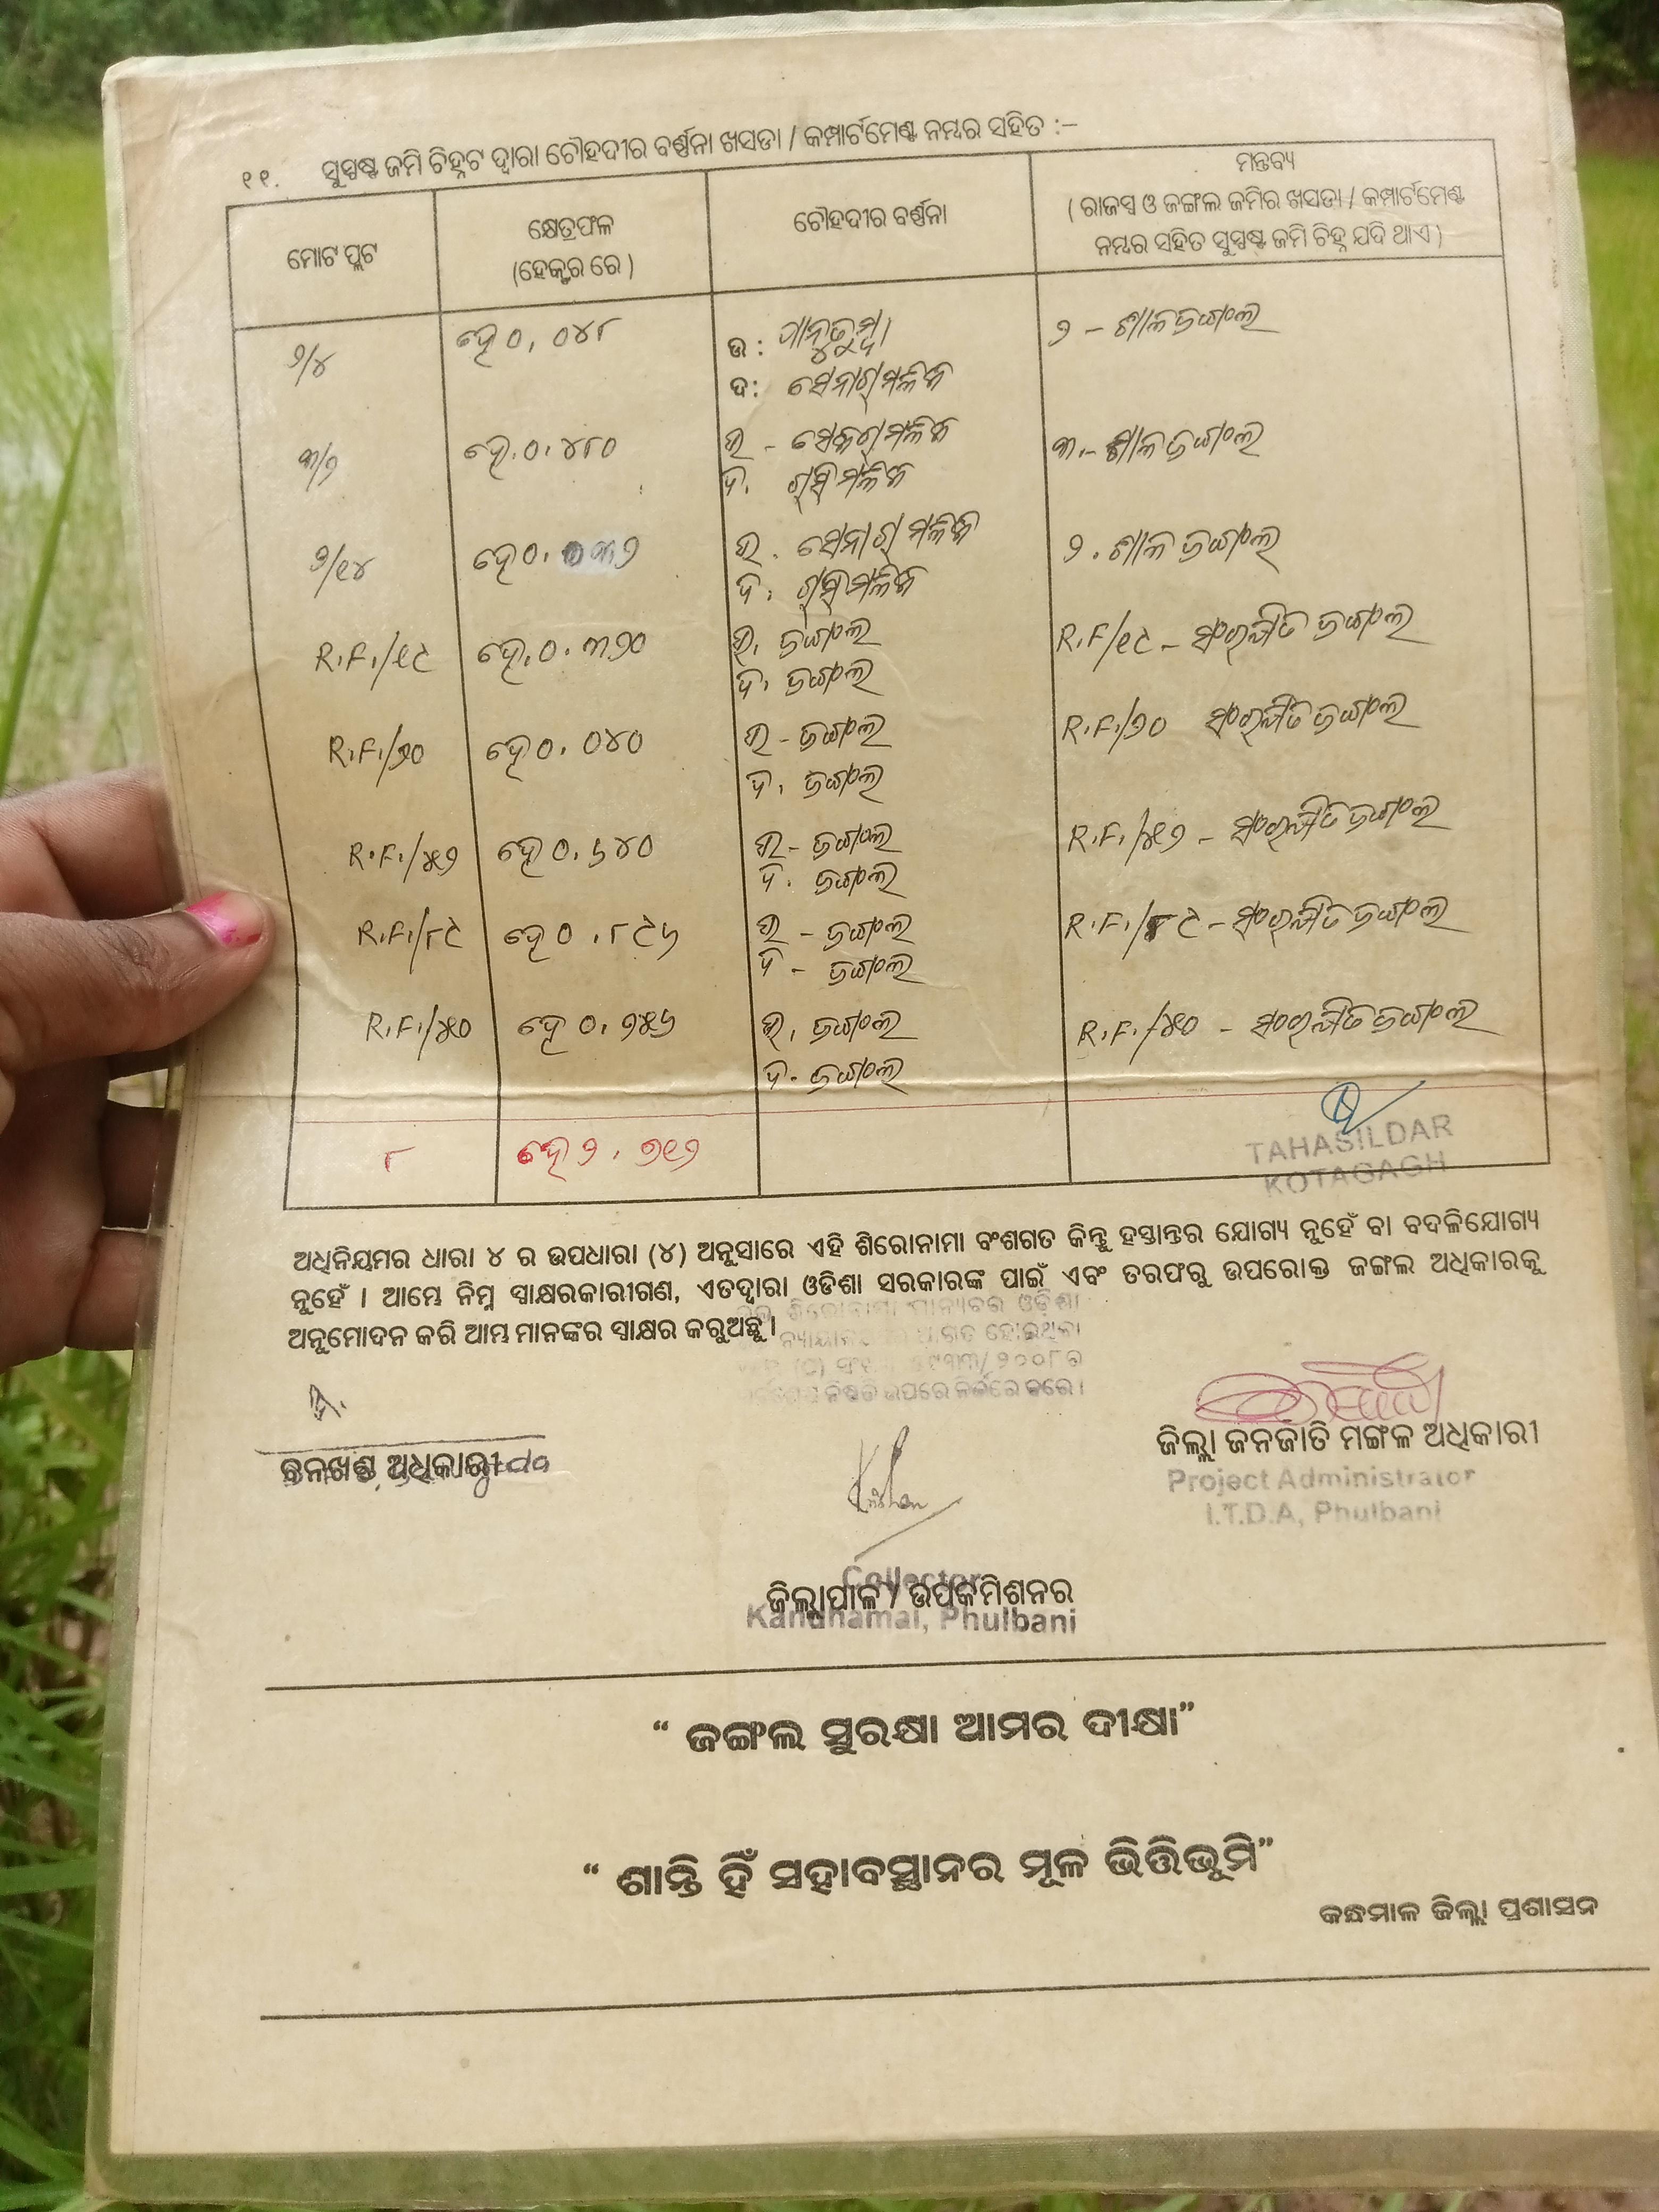 ୧୧. ସୁସ୍ପଷ୍ଟ ଜମି ଚିହ୍ନଟ ଦ୍ୱାରା ଚୌହଦୀର ବର୍ଣ୍ଣନା ଖସଡା / କମ୍ପାର୍ଟମେଣ୍ଟ ନମ୍ଵର ସହିତ :–
ମୋଟ ପ୍ଲଟ
କ୍ଷେତ୍ରଫଳ
(ହେକ୍ଟର ରେ)
ଚୌହଦୀର ବର୍ଣ୍ଣନା
ମନ୍ତବ୍ୟ
( ରାଜସ୍ୱ ଓ ଜଙ୍ଗଲ ଜମିର ଖସଡା / କମ୍ପାର୍ଟମେଣ୍ଟ
ନମ୍ଵର ସହିତ ସୁସ୍ପଷ୍ଟ ଜମି ଚିହ୍ନ ଯଦି ଥାଏ )
୨/୪ ହେ ୦. ୦୪୮ ଉ : ୨ - ଶାଳଜଙ୍ଗଲ
ଦ: ମଳିକ
୩/୨ ହେ.୦.୪୮୦ ଉ - ମଳିକ ୩.- ଶାଳଜଙ୍ଗଲ
ଦ. ମଳିକ
୨/୧୪ ହେ ୦. ୦୩୨ ଉ. ମଳିକ ୨. ଶାଳ ଜଙ୍ଗଲ
ଦ. ମଳିକ
R.F./୧୯ ହେ.୦.୩୨୦ ଉ. ଜଙ୍ଗଲ R.F/୧୯ - ସଂରକ୍ଷିତ ଜଙ୍ଗଲ
ଦ. ଜଙ୍ଗଲ
R.F./୨୦ ହେ ୦. ୦୪୦ ଉ - ଜଙ୍ଗଲ R.F./୨୦ ସଂରକ୍ଷିତ ଜଙ୍ଗଲ
ଦ. ଜଙ୍ଗଲ
R.F./୫୨ ହେ ୦.୬୪୦ ଉ - ଜଙ୍ଗଲ R.F./୫୨ - ସଂରକ୍ଷିତ ଜଙ୍ଗଲ
ଦ. ଜଙ୍ଗଲ
R.F./୮୯ ହେ ୦.୮୯୬ ଉ - ଜଙ୍ଗଲ R.F./୮୯ - ସଂରକ୍ଷିତ ଜଙ୍ଗଲ
ଦ - ଜଙ୍ଗଲ
R.F./୫୦ ହେ ୦.୨୫୬ ଉ. ଜଙ୍ଗଲ R.F./୫୦ - ସଂରକ୍ଷିତ ଜଙ୍ଗଲ
ଦ. ଜଙ୍ଗଲ
୮ ହେ ୨.୭୧୨
TAHASILDAR
KOTAGAGH
ଅଧିନିୟମର ଧାରା ୪ ର ଉପଧାରା (୪) ଅନୁସାରେ ଏହି ଶିରୋନାମା ବଂଶଗତ କିନ୍ତୁ ହସ୍ତାନ୍ତର ଯୋଗ୍ୟ ନୁହେଁ ବା ବଦଳିଯୋଗ୍ୟ
ନୁହେଁ । ଆମ୍ଭେ ନିମ୍ନ ସ୍ୱାକ୍ଷରକାରୀଗଣ, ଏତଦ୍ୱାରା ଓଡିଶା ସରକାରଙ୍କ ପାଇଁ ଏବଂ ତରଫରୁ ଉପରୋକ୍ତ ଜଙ୍ଗଲ ଅଧିକାରକୁ
ଅନୁମୋଦନ କରି ଆମ୍ଭ ମାନଙ୍କର ସ୍ୱାକ୍ଷର କରୁଅଛୁ ।
ଓଡ଼ିଶା
ହୋଇଥିବା
ଉପରେ ନିର୍ଭର କରେ ।
ବନଖଣ୍ଡ ଅଧିକାରୀ
ଜିଲ୍ଲା ଜନଜାତି ମଙ୍ଗଳ ଅଧିକାରୀ
Project Administrator
I.T.D.A, Phulbani
Collector
ଜିଲ୍ଲାପାଳ / ଉପକମିଶନର
Kandhamal, Phulbani
“ ଜଙ୍ଗଲ ସୁରକ୍ଷା ଆମର ଦୀକ୍ଷା”
“ ଶାନ୍ତି ହିଁ ସହାବସ୍ଥାନର ମୂଳ ଭିତ୍ତିଭୂମି”
କନ୍ଧମାଳ ଜିଲ୍ଲା ପ୍ରଶାସନ